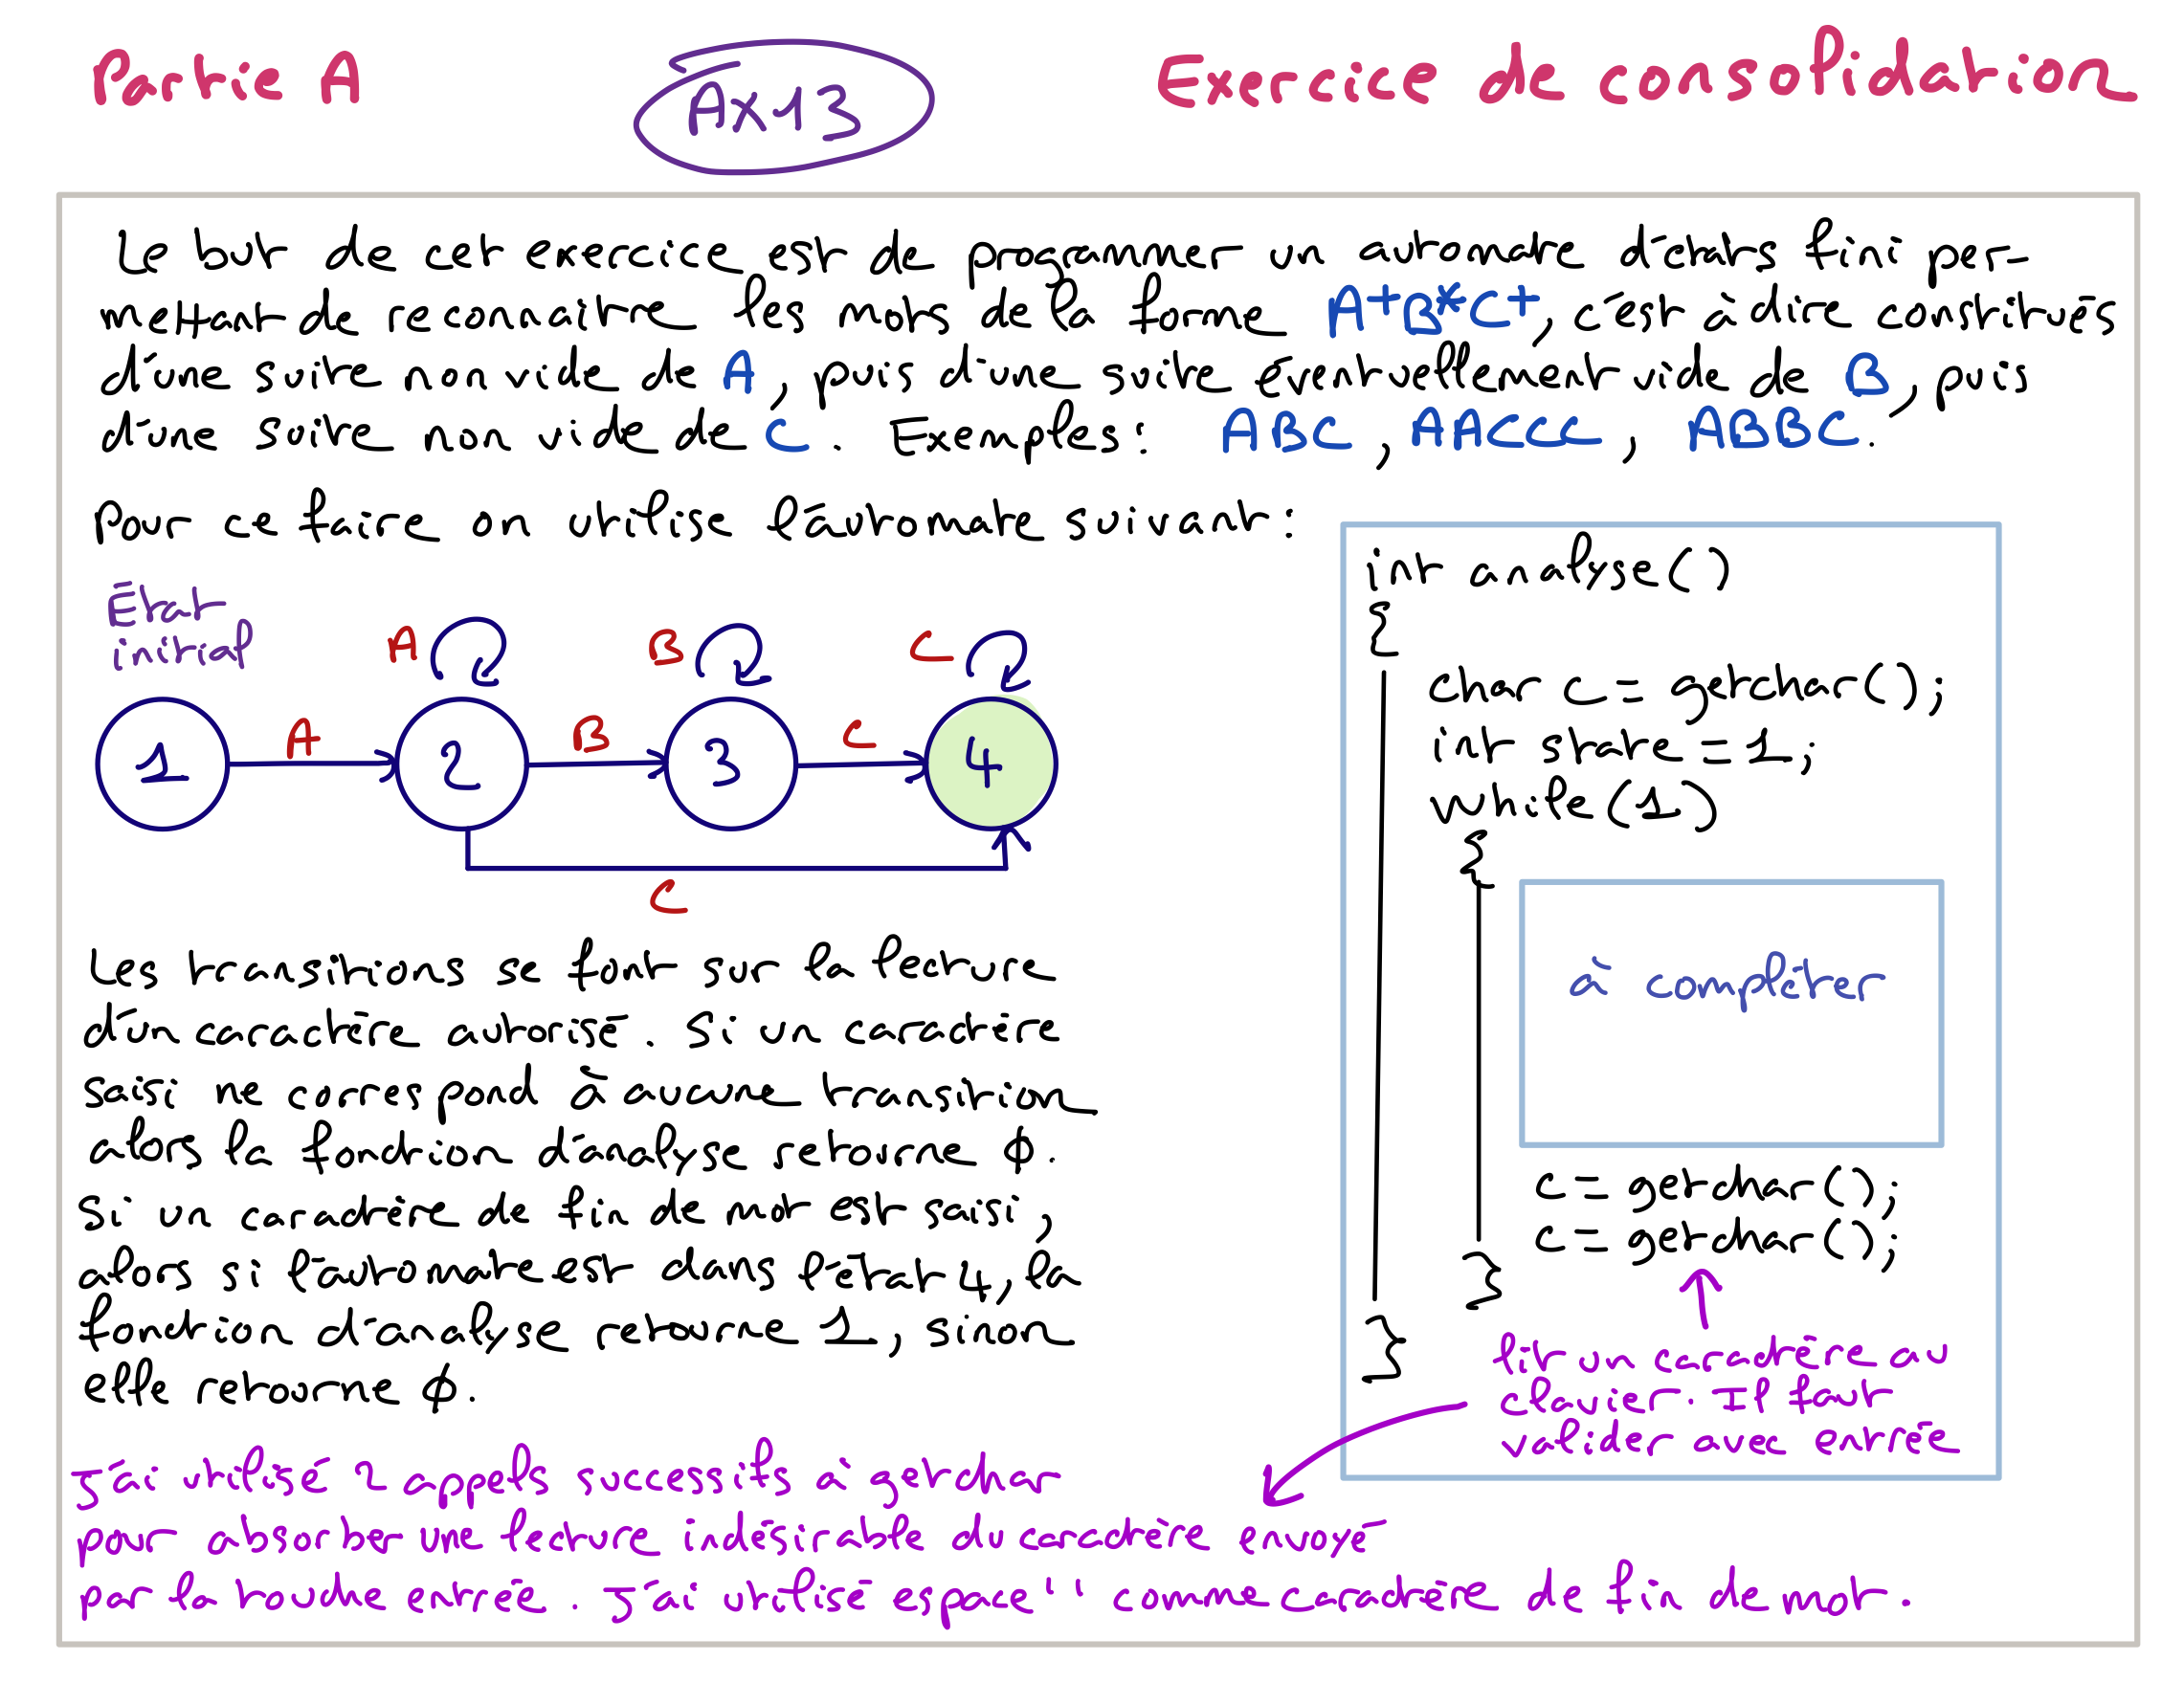 Partie A
Ax13
Exercice de consolidation
Le but de cet exercice est de programmer un automate d'états fini per-
mettant de reconnaitre les mots de la forme A+B*C+, c'est à dire constitués
d'une suite non vide de A, puis d'une suite éventuellement vide de B, puis
d'une suite non vide de C. Exemples: ABC, AACCC, ABBBC.
Pour ce faire on utilise l'automate suivant:
État
initial
A
B
C
1
A
2
B
3
C
4
C
Les transitions se font sur la lecture
d'un caractère autorisé. Si un caractère
saisi ne correspond à aucune transition
alors la fonction d'analyse retourne 0.
Si un caractère de fin de mot est saisi,
alors si l'automate est dans l'état 4, la
fonction d'analyse retourne 1, sinon
elle retourne 0.
int analyse()
{
char c = getchar();
int state = 1;
while(1)
{
à compléter
c = getchar();
c = getchar();
}
}
lire un caractère au
clavier. Il faut
valider avec entrée
J'ai utilisé 2 appels successifs à getchar
pour absorber une lecture indésirable du caractère envoyé
par la touche entrée. J'ai utilisé espace ' ' comme caractère de fin de mot.